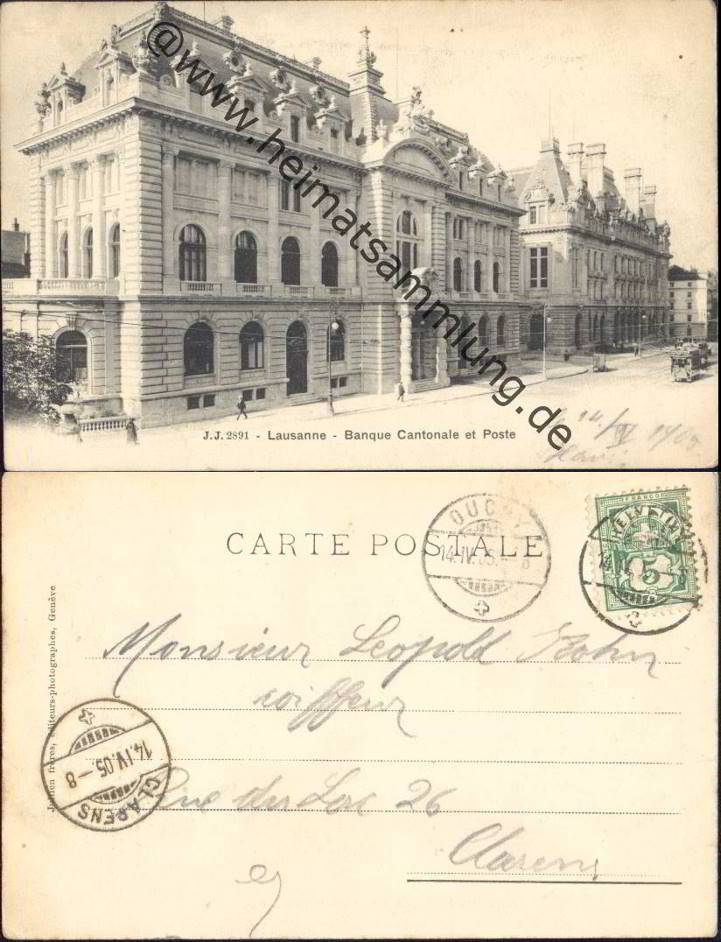 @www.heimatsammlung.de
J.J. 2891 - Lausanne - Banque Cantonale et Poste
14/IV 1905
CARTE POSTALE
OUCHY
14.IV.05. - 8
FRANCO
HELVETIA
5
Jullien frères, éditeurs-photographes, Genève
Monsieur Leopold
coiffeur
Rue du Lac 26
Clarens
14.IV.05. - 8
CLARENS